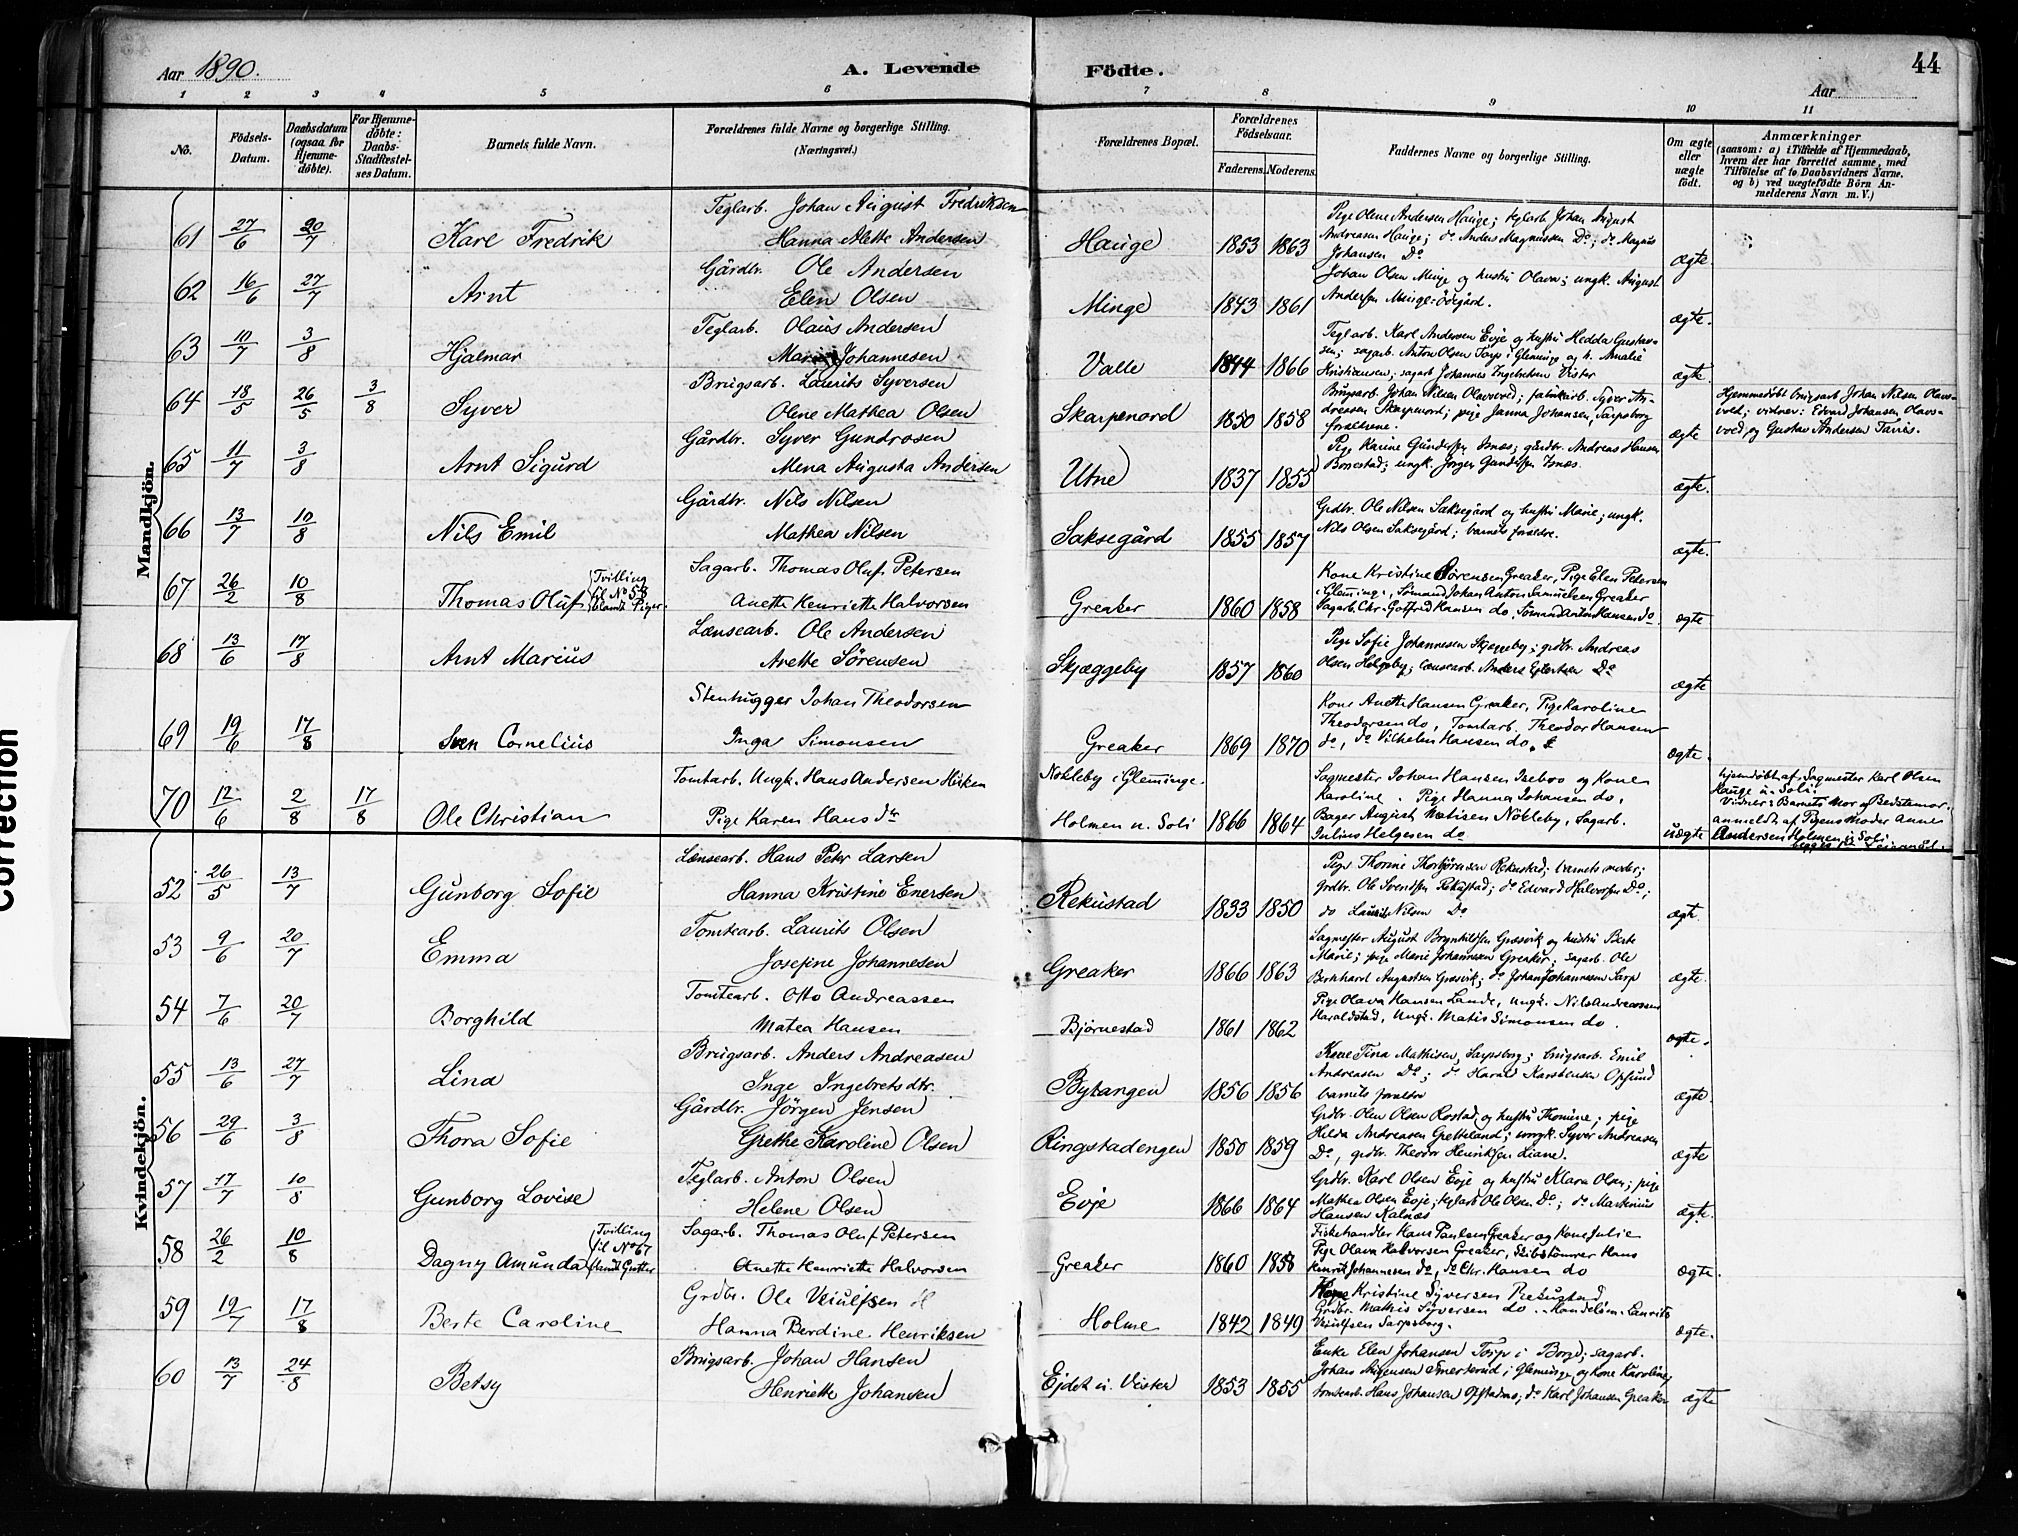 Aar 1890.
A. Levende Födte.
44
Aar
1 2 3 4 5 6 7 8 9 10 11
No.
Födsels-Datum.
Daabsdatum (ogsaa for Hjemme-döbte).
For Hjemme-döbte: Daabs-Stadfæstel-ses Datum.
Barnets fulde Navn.
Forældrenes fulde Navne og borgerlige Stilling. (Næringsvei.)
Forældrenes Bopæl.
Forældrenes Födselsaar.
Faderens. Moderens.
Faddernes Navne og borgerlige Stilling.
Om ægte eller uægte födt.
Anmærkninger
(saasom: a) i Tilfælde af Hjemmedaab, hvem der har forrettet samme, med Tilföielse af to Daabsvidners Navne. og b) ved uægtefödte Börn An-melderens Navn m. V.)
Mandkjön.
61 27/6 20/7 Karl Fredrik
Teglarb. Johan August Fredriksen
Hanna Alette Andersen
Hauge 1853 1863
Pige Olene Andersen Hauge; teglarb. Johan August
Andreasen Hauge; do Anders Magnussen Do; do Magnus
Johansen Do
ægte.
62 16/6 27/7 Arnt
Gårdbr. Ole Andersen
Elen Olsen
Minge 1843 1861
Johan Olsen Minge og hustru Olava; ungk. August
Andersen Minge-Ödegård.
ægte.
63 10/7 3/8 Hjalmar
Teglarb. Olaus Andersen
Marie Johannesen
Valle 1844 1866
Teglarb. Karl Andersen Evje og hustru Hedda Gustav-
sen; sagarb. Anton Olsen Torp i Glemmige og h. Amalie
Kristiansen; sagarb. Johannes Ingebretsen Vister
ægte.
64 18/5 26/5 3/8 Syver
Brugsarb. Laurits Syversen
Olene Mathea Olsen
Skarpenord 1850 1858
Brugsarb. Johan Nilsen Olavsvold; fabrikarb. Syver An-
dreassen Skarpenord; pige Janna Johansen, Sarpsborg
forældrene.
ægte
Hjemmedøbt brugsarb. Johan Nilsen Olavs-
vold; vidner: Edvard Johansen Olavs-
vold og Gustav Andersen Tarris.
65 11/7 3/8 Arnt Sigurd
Gårdbr. Syver Gundrosen
Mena Augusta Andersen
Utne 1837 1855
Pige Karine Gundersen Isnæs; gårdbr. Andreas Hansen
Bonestad; ungk. Jørgen Gundersen Isnæs.
ægte.
66 13/7 10/8 Nils Emil
Gårdbr. Nils Nilsen
Mathea Nilsen
Saksegård 1855 1857
Grdbr. Ole Nilsen Saksegård og hustru Marie; ungk.
Nils Olsen Saksegård; barnets forældre.
ægte.
67 26/2 10/8 Thomas Oluf (Tvilling til No 58 blandt Piger.
Sagarb. Thomas Oluf Petersen
Anette Henriette Halvorsen
Greaker 1860 1858
Kone Kristine Sörensen Greaker, Pige Elen Petersen
i Glemmige, Sömand Johan Anton Samuelsen Greaker
Sagarb. Chr. Gotfred Hansen do, Sömand Anton Hansen do
ægte
68 13/6 17/8 Arnt Marius
Lænsearb. Ole Andersen
Anette Sørensen
Skjæggeby 1857 1860
Pige Sofie Johannesen Skjæggeby; grdbr. Andreas
Olsen Helgeby; lænsearb. Anders Eilertsen Do
ægte
69 19/6 17/8 Sven Cornelius
Stenhugger Johan Theodorsen
Inga Simonsen
Greaker 1869 1870
Kone Anette Hansen Greaker, Pige Karoline
Theodorsen do, Tomtarb. Theodor Hansen
do, do Vilhelm Hansen do.
ægte.
70 12/6 2/8 17/8 Ole Christian
Tomtarb. Ungk. Hans Andersen
Pige Karen Hansdtr
Nökleby i Glemminge.
Holmen u. Soli 1866 1864
Sagmester Johan Hansen Iseboo og Kone
Karoline. Pige Hanna Johansen do,
Bager August Matisen Nökleby, Sagarb.
Julius Helgesen do
uægte
hjemdöbt af Sagmester Karl Olsen
Hauge u. Soli.
Vidner: Barnets Mor og Bedstemor.
anmeldt af Pigens Moder Anne
Andersen Holmen u. Soli
Kvindekjön.
52 26/5 13/7 Gunborg Sofie
Lænsearb. Hans Peter Larsen
Hanna Kristine Enersen
Rekustad 1833 1850
Pige Thorine Thorbjörnsen Rekustad; barnets moder;
grdbr. Ole Svendsen Rekustad; do Edvard Halvorsen Do;
do Laurits Nilsen Do
ægt.
53 9/6 20/7 Emma
Tomtearb. Laurits Olsen
Josefine Johannesen
Greaker 1866 1863
Sagmester August Brynhildsen Græsvik og hustru Berte
Marie; pige Marie Johannesen Greaker; sagarb. Ole
Bernhard Augustsen Græsvik; do Johan Johannesen Sarp
ægte.
54 7/6 20/7 Borghild
Tomtearb. Otto Andreassen
Matea Hansen
Bjørnestad 1861 1862
Pige Olava Hansen Lande, Ungk. Nils Andreassen
Haraldstad, Ungk. Matis Simonsen do.
ægte.
55 13/6 27/7 Lina
Brugsarb. Anders Andreasen
Inge Ingebretsdtr.
Bytangen 1856 1856
Kone Tina Mathisen, Sarpsborg; brugsarb. Emil
Andreasen Do; do Harald Karstensen Opsund
barnets forældre
ægte.
56 29/6 3/8 Thora Sofie
Gårdbr. Jörgen Jensen
Grethe Karoline Olsen
Ringstadengen 1850 1859
Grdbr. Olen Olsen Rostad og hustru Thomine; pige
Hilda Andreasen Gretteland; ungk. Syver Andreasen
Do, grdbr. Theodor Henriksen Liane.
ægte
57 17/7 10/8 Gunborg Lovise
Teglarb. Anton Olsen
Helene Olsen
Evje 1866 1864
Grdbr. Karl Olsen Evje og hustru Klara Olsen; pige
Mathea Olsen Evje; teglarb. Ole Olsen Do; do Martinius
Hansen Kalnæs
ægt.
58 26/2 10/8 Dagny Amunda (Tvilling til No 67 blandt Gutter
Sagarb. Thomas Oluf Petersen
Anette Henriette Halvorsen
Greaker 1860 1858
Fiskehandler Hans Paulsen Greaker og Kone Julie
Pige Olava Halvorsen Greaker, Skibstömrer Hans
Henrik Johannesen do, do Chr. Hansen do
ægte.
59 19/7 17/8 Berte Caroline
Grdbr. Ole Veiulfsen
Hanna Berdine Henriksen
Holme 1842 1849
Kone Kristine Syversen Rekustad
Grdbr. Mathis Syversen do. Handelsm. Laurits
Veiulfsen Sarpsborg.
ægte.
60 13/7 24/8 Betsy
Brugsarb. Johan Hansen
Henriette Johansen
Ejdet u. Vister 1853 1855
Enke Elen Johansen Torp i Borge; sagarb.
Johan Jørgensen Smertured i Glemminge og kone Karoline;
tomtearb. Hans Johansen Opstadmo; do Karl Johansen Greaker
ægte
Correction